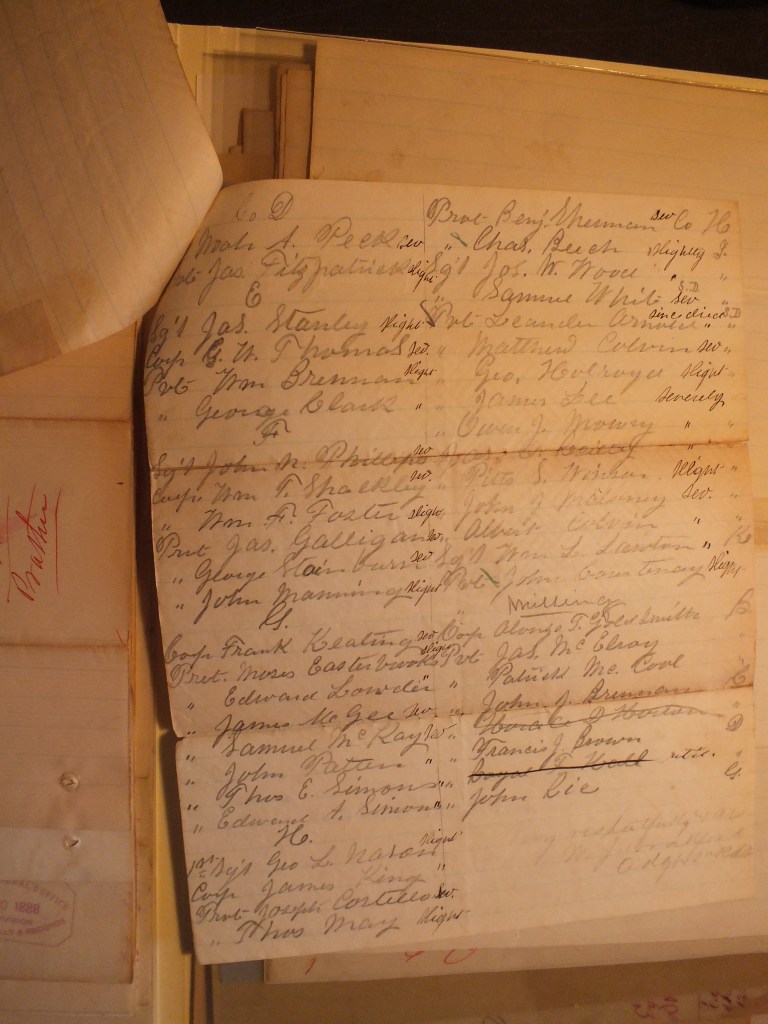 Co D
Noah A. Peck sev
Pvt Jas. Fitzpatrick slight
E
Sg't Jas. Stanley slight
Corp G. W. Thomas sev.
Pvt Wm Brennan slight
" George Clark "
F
Sg't John N. Phillips sev
Corp. Wm T. Shackley sev.
" Wm F. Foster slight
Prvt Jas. Galligan sev.
" George Stainburn sev
" John Manning slight
G.
Corp Frank Keating sev
Prvt. Moses Easterbrooks slight
" Edward Lowder "
" James McGee sev.
" Samuel McKay sev
" John Patten "
" Thos E. Simons "
" Edward A. Simons "
H.
1st Sg't Geo L. Nason slight
Corp James King "
Prvt Joseph Costello sev.
" Thos May slight
Prvt Benj. Sherman sev Co H
" Chas. Beech slightly I.
Sg't Jos. W. Wood "
" Samuel White sev. "
Pvt Leander Arnold since died "
" Matthew Colvin sev "
" Geo. Holroyd slight "
" James Lee severely
" Owen J. Mowry " "
" Pitts S. Winsor slight "
" John J. Maloney sev. "
" Albert Colvin " "
Sg't Wm L. Lawton " K
Pvt John Courtenay slight "
Missing
Corp Alonzo T. Goldsmith B
Pvt Jas. McElroy
" Patrick McCool
" John J. Brennan C
" Horace D Horton "
" Francis J. Brown D
" T. Hall "
" John Lie G.
Prather
1888